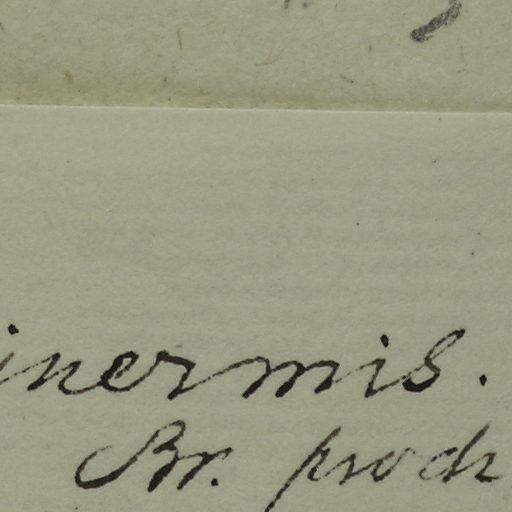 inermis.
Br. prodr